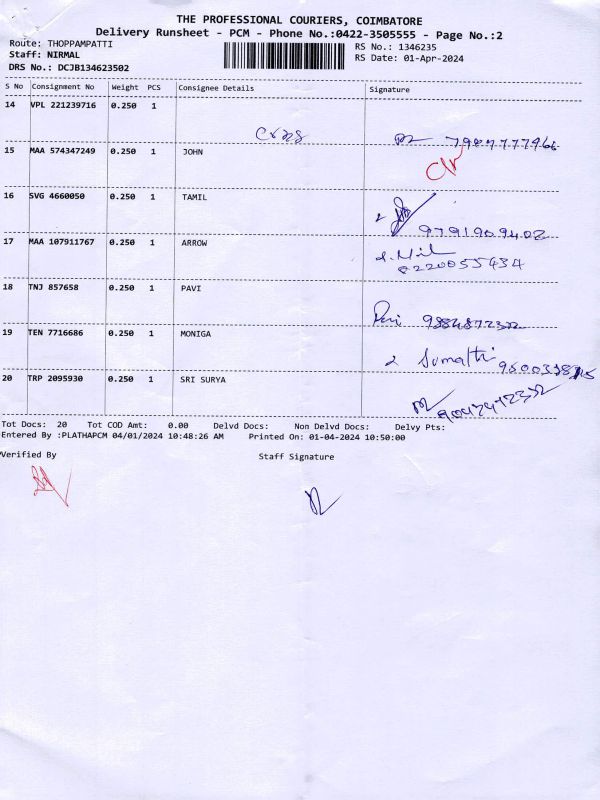 THE PROFESSIONAL COURIERS, COIMBATORE
Delivery Runsheet - PCM - Phone No.:0422-3505555 - Page No.:2
Route: THOPPAMPATTI
RS No.: 1346235
Staff: NIRMAL
RS Date: 01-Apr-2024
DRS No.: DCJB134623502
S No Consignment No Weight PCS Consignee Details Signature
14 VPL 221239716 0.250 1
15 MAA 574347249 0.250 1 JOHN
16 SVG 4660050 0.250 1 TAMIL
9791909408
17 MAA 107911767 0.250 1 ARROW
8220055434
18 TNJ 857658 0.250 1 PAVI
Pavi
19 TEN 7716686 0.250 1 MONIGA
Sumathi
20 TRP 2095930 0.250 1 SRI SURYA
Tot Docs: 20 Tot COD Amt: 0.00 Delvd Docs: Non Delvd Docs: Delvy Pts:
Entered By :PLATHAPCM 04/01/2024 10:48:26 AM Printed On: 01-04-2024 10:50:00
Verified By Staff Signature